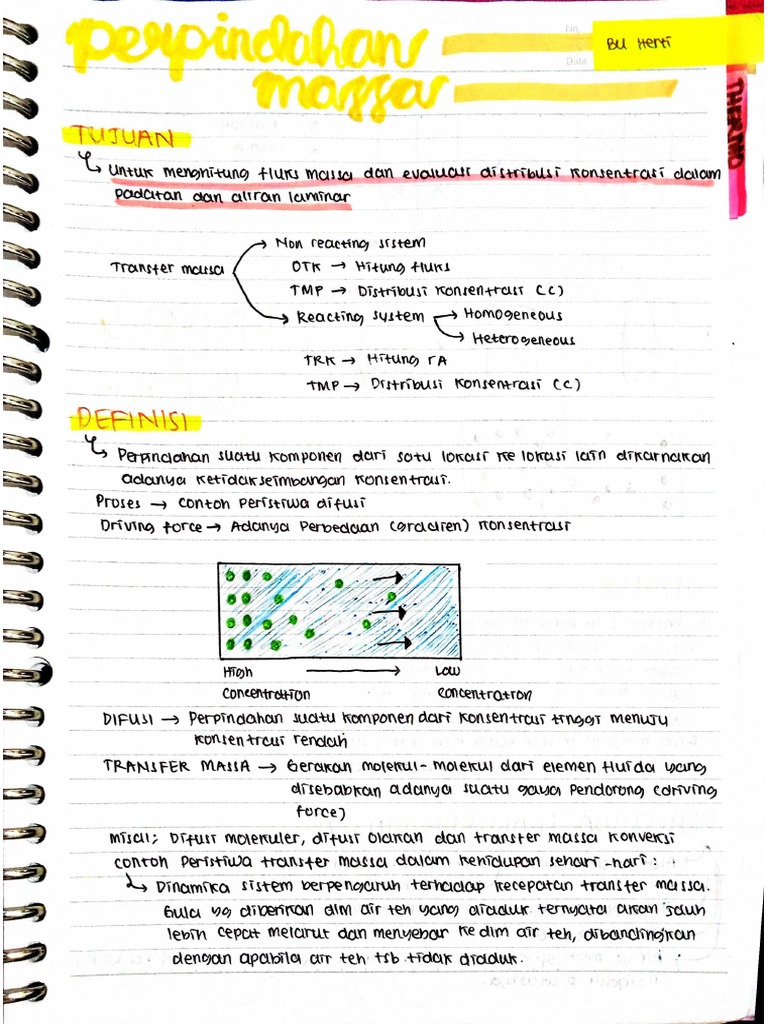 perpindahan
massa
No.
Date
BU Herti
THERMO
TUJUAN
↳ Untuk menghitung fluks massa dan evaluasi distribusi konsentrasi dalam
padatan dan aliran laminar
Transfer massa
→ Non reacting sistem
OTK → Hitung fluks
TMP → Distribusi konsentrasi (C)
→ Reacting system → Homogeneous
→ Heterogeneous
TRK → Hitung rA
TMP → Distribusi konsentrasi (C)
DEFINISI
↳ Perpindahan suatu komponen dari satu lokasi ke lokasi lain dikarnakan
adanya ketidakseimbangan konsentrasi.
Proses → contoh peristiwa difusi
Driving force → Adanya Perbedaan (gradien) konsentrasi
High → Low
concentration concentration
DIFUSI → Perpindahan suatu komponen dari konsentrasi tinggi menuju
konsentrasi rendah
TRANSFER MASSA → Gerakan molekul-molekul dari elemen fluida yang
disebabkan adanya suatu gaya pendorong (driving
force)
misal: Difusi molekuler, difusi olakan dan transfer massa konveksi
contoh peristiwa transfer massa dalam kehidupan sehari-hari:
↳ Dinamika sistem berpengaruh terhadap kecepatan transfer massa.
Gula yg diberikan dlm air teh yang diaduk ternyata akan jauh
lebih cepat melarut dan menyebar ke dlm air teh, dibandingkan
dengan apabila air teh tsb tidak diaduk.